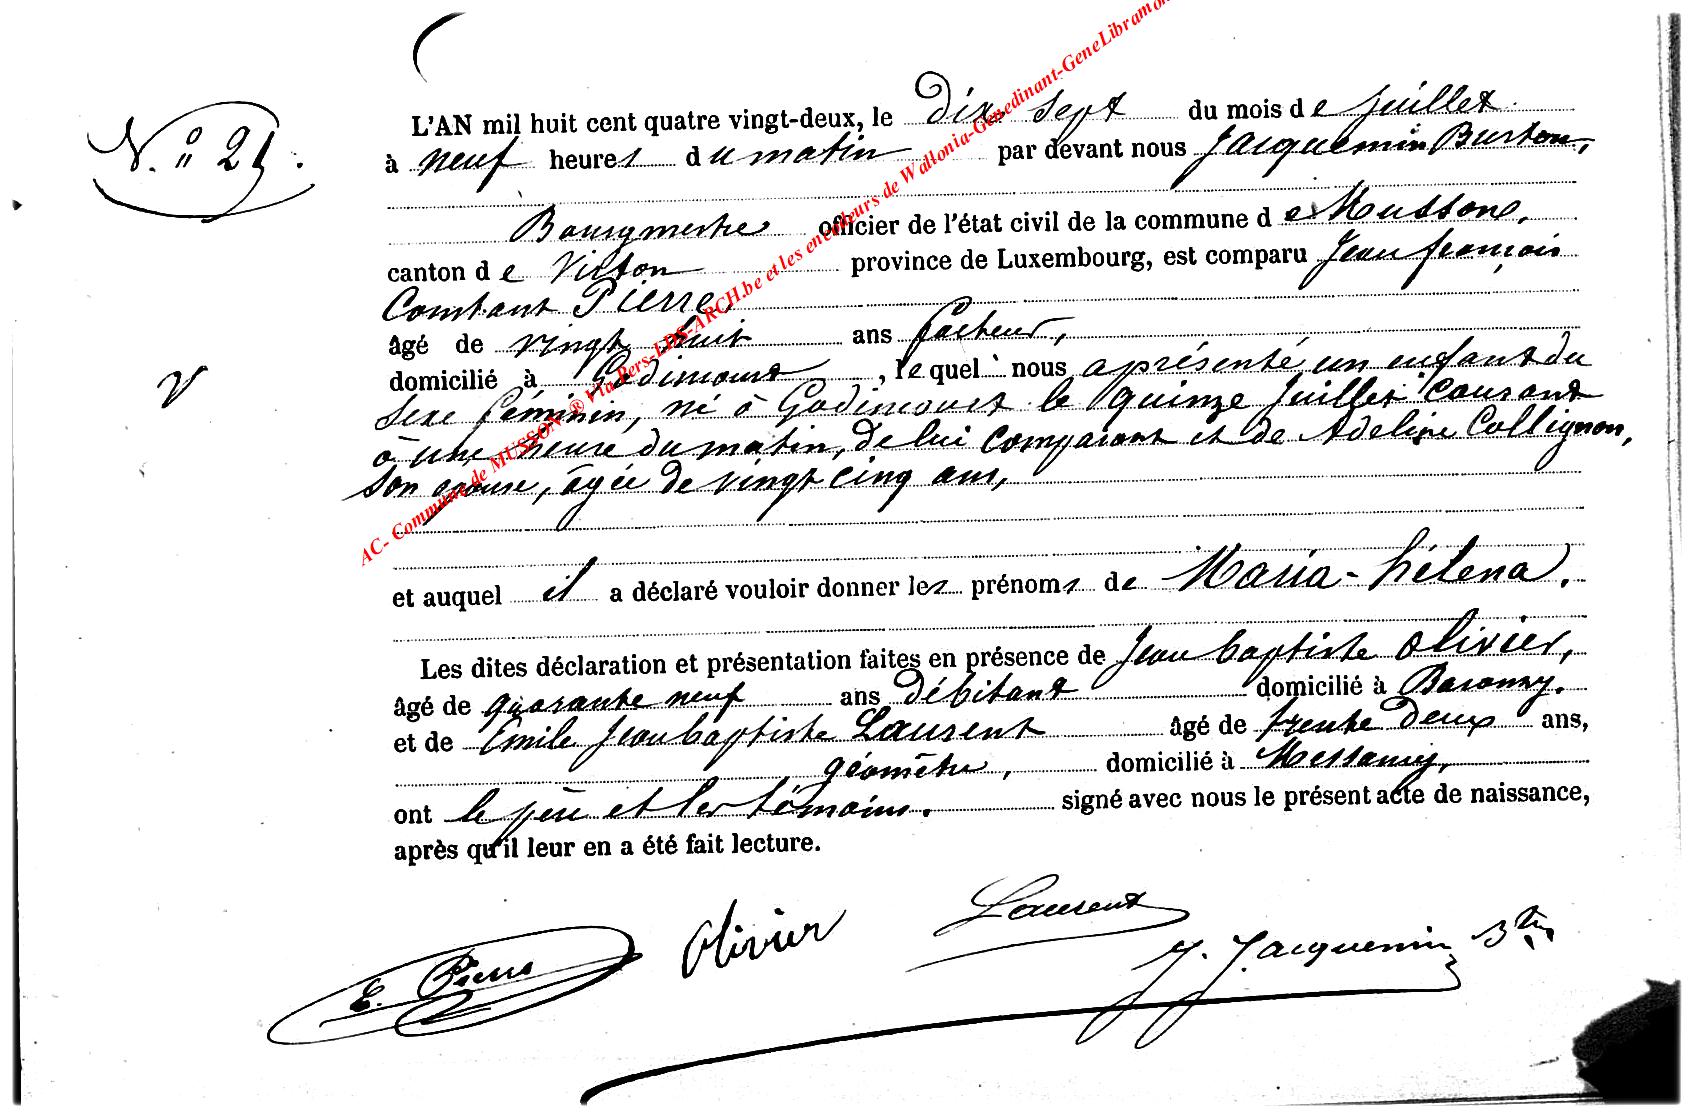 N.° 21.
L'AN mil huit cent quatre vingt-deux, le Dix Sept du mois de Juillet
à neuf heures du matin par devant nous Jacquemin Burton,
Bourgmestre officier de l'état civil de la commune de Musson,
canton de Virton province de Luxembourg, est comparu Jean françois
Constant Pierre,
âgé de vingt huit ans facteur,
domicilié à Godimourt, lequel nous a présenté un enfant du
sexe féminin, né à Godimourt le quinze Juillet courant
à une heure du matin, de lui comparant et de Adeline Collignon,
son épouse, âgée de vingt cinq ans,
et auquel il a déclaré vouloir donner les prénoms de Maria-hélena.
Les dites déclaration et présentation faites en présence de Jean baptiste Olivier,
âgé de quarante neuf ans débitant domicilié à Baranzy.
et de Emile Jean baptiste Laurent âgé de trente deux ans,
géomètre, domicilié à Messancy,
ont le père et les témoins. signé avec nous le présent acte de naissance,
après qu'il leur en a été fait lecture.
E. Pierre Olivier Laurent
J. Jacquemin Btn
V
AC- Commune de MUSSON ® Via Pers-LDS-ARCH.be et les encodeurs de Wallonia-Genedinant-GeneLibramon